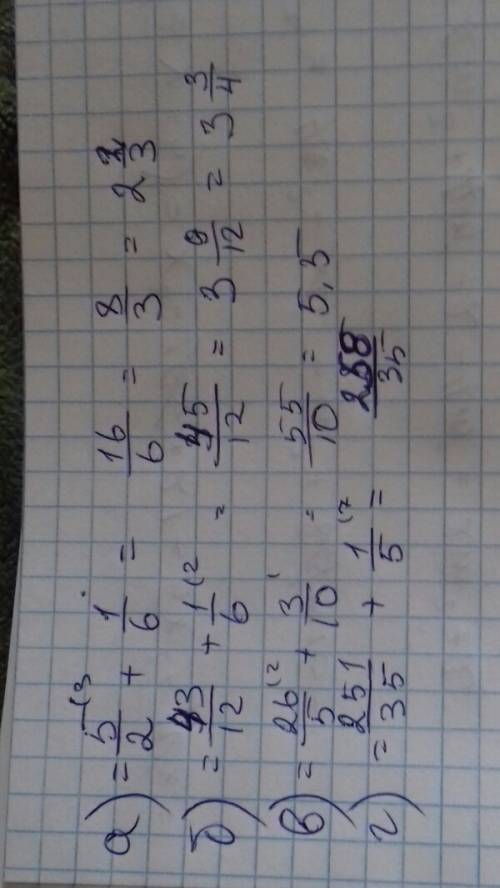 а) = 5/2 (3 + 1/6 = 16/6 = 8/3 = 2 2/3
б) = 43/12 + 1/6 (2 = 45/12 = 3 9/12 = 3 3/4
в) = 26/5 (2 + 3/10 = 55/10 = 5,5
г) = 251/35 + 1/5 (7 = 258/35